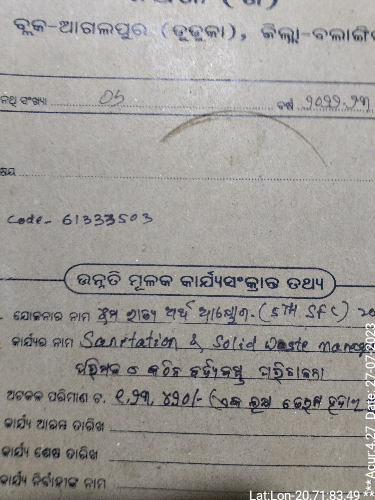 ବ୍ଲକ-ଆଗଲପୁର (ଡୁଡୁକା), ଜିଲ୍ଲା-ବଲାଙ୍ଗି
ନଥି ସଂଖ୍ୟା 05 ବର୍ଷ ୨୦୨୨-୨୩
ଷୟ
Code- 61333503
ଉନ୍ନତି ମୂଳକ କାର୍ଯ୍ୟସଂକ୍ରାନ୍ତ ତଥ୍ୟ
ଯୋଜନାର ନାମ ୫ମ ରାଜ୍ୟ ଅର୍ଥ ଆୟୋଗ. (5TH SFC) 20
କାର୍ଯ୍ୟର ନାମ Sanitation & Solid Waste Manag
ପରିମଳ ଓ କଠିନ ବର୍ଜ୍ୟବସ୍ତୁ ପରିଚାଳନା
ଅଟକଳ ପରିମାଣ ଟ. ୧,୨୩,୪୨୦/- (ଏକ ଲକ୍ଷ ତେଇଶ ହଜାର
କାର୍ଯ୍ୟ ଆରମ୍ଭ ତାରିଖ
କାର୍ଯ୍ୟ ଶେଷ ତାରିଖ
କାର୍ଯ୍ୟ ନିର୍ବାହୀଙ୍କ ନାମ
Lat:Lon-20.71:83.49
***Acur:4.27 Date: 27-07-2023